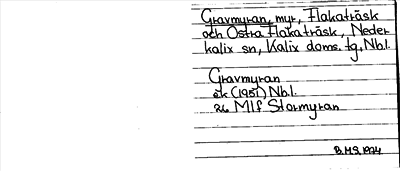 Gravmyran, myr, Flakaträsk
och Östra Flakaträsk, Neder
kalix sn, Kalix doms. tg, Nbl.
Gravmyran
ek (1951) Nbl.
26 Mlf Stormyran
B.M.S. 1974